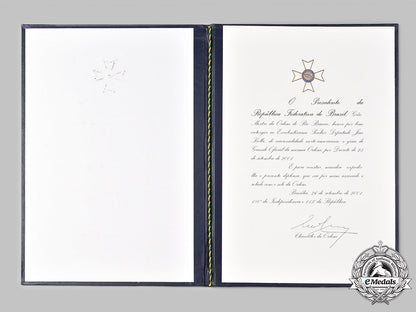 O Presidente da
República Federativa do Brasil, Grão-
Mestre da Ordem de Rio Branco, houve por bem
outorgar ao Excelentíssimo Senhor Deputado
de nacionalidade o grau de
Grande Oficial da mesma Ordem, por Decreto de 25
de setembro de 2001.
E para constar, mandou expedir-
lhe o presente diploma, que vai por mim assinado e
selado com o selo da Ordem.
Brasília, 26 de setembro de 2001,
180º da Independência e 113º da República.
Chanceler da Ordem
eMedals